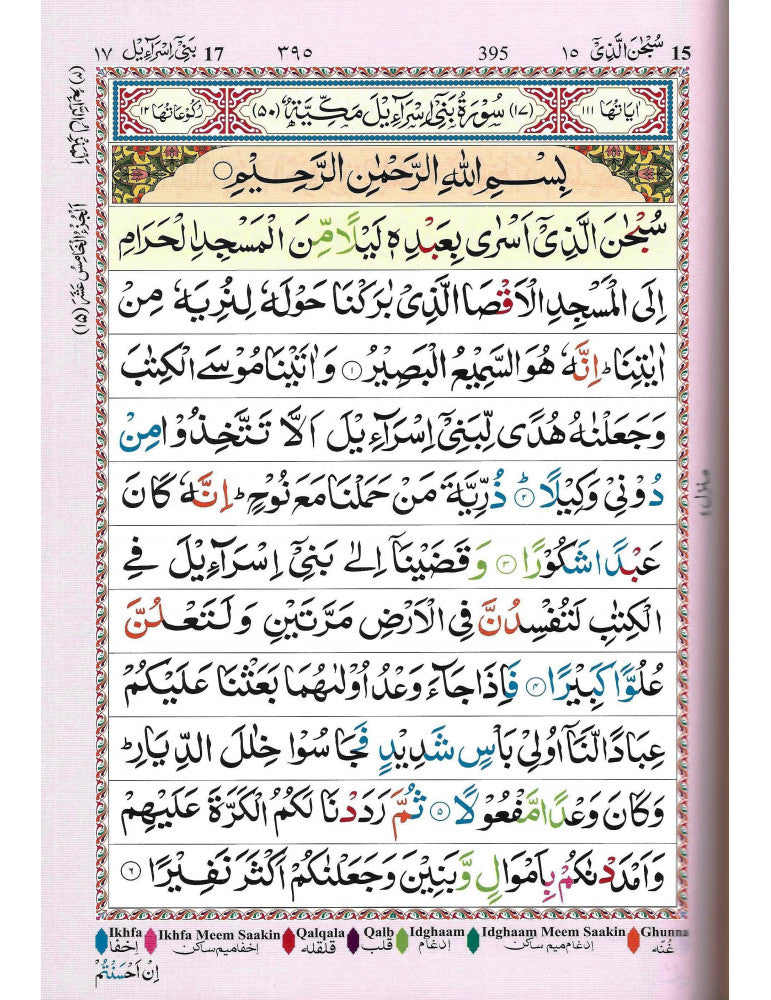 15 سُبْحٰنَ الَّذِيْٓ ١٥ 395 ٣٩٥ 17 بَنِيْٓ اِسْرَآءِيْل ١٧
اٰيَاتُهَا ١١١ (١٧) سُوْرَةُ بَنِيْٓ اِسْرَآءِيْلَ مَكِّيَّةٌ (٥٠) رُكُوْعَاتُهَا ١٢
بِسْمِ اللّٰهِ الرَّحْمٰنِ الرَّحِيْمِ
سُبْحٰنَ الَّذِيْٓ اَسْرٰى بِعَبْدِهٖ لَيْلًا مِّنَ الْمَسْجِدِ الْحَرَامِ
اِلَى الْمَسْجِدِ الْاَقْصَا الَّذِيْ بٰرَكْنَا حَوْلَهٗ لِنُرِيَهٗ مِنْ
اٰيٰتِنَا ؕ اِنَّهٗ هُوَ السَّمِيْعُ الْبَصِيْرُ ١ وَاٰتَيْنَا مُوْسَى الْكِتٰبَ
وَجَعَلْنٰهُ هُدًى لِّبَنِيْٓ اِسْرَآءِيْلَ اَلَّا تَتَّخِذُوْا مِنْ
دُوْنِيْ وَكِيْلًا ؕ ٢ ذُرِّيَّةَ مَنْ حَمَلْنَا مَعَ نُوْحٍ ؕ اِنَّهٗ كَانَ
عَبْدًا شَكُوْرًا ٣ وَقَضَيْنَآ اِلٰى بَنِيْٓ اِسْرَآءِيْلَ فِي
الْكِتٰبِ لَتُفْسِدُنَّ فِي الْاَرْضِ مَرَّتَيْنِ وَلَتَعْلُنَّ
عُلُوًّا كَبِيْرًا ٤ فَاِذَا جَآءَ وَعْدُ اُوْلٰىهُمَا بَعَثْنَا عَلَيْكُمْ
عِبَادًا لَّنَآ اُولِيْ بَاْسٍ شَدِيْدٍ فَجَاسُوْا خِلٰلَ الدِّيَارِ ؕ
وَكَانَ وَعْدًا مَّفْعُوْلًا ٥ ثُمَّ رَدَدْنَا لَكُمُ الْكَرَّةَ عَلَيْهِمْ
وَاَمْدَدْنٰكُمْ بِاَمْوَالٍ وَّبَنِيْنَ وَجَعَلْنٰكُمْ اَكْثَرَ نَفِيْرًا ٦
Ikhfa Ikhfa Meem Saakin Qalqala Qalb Idghaam Idghaam Meem Saakin Ghunna
اِخفا اِخفا میم ساکن قلقله قلب اِدغام اِدغام میم ساکن غُنَّه
اِنْ اَحْسَنْتُمْ
اَلْجُزْءُ الْخَامِسُ عَشَرَ (١٥)